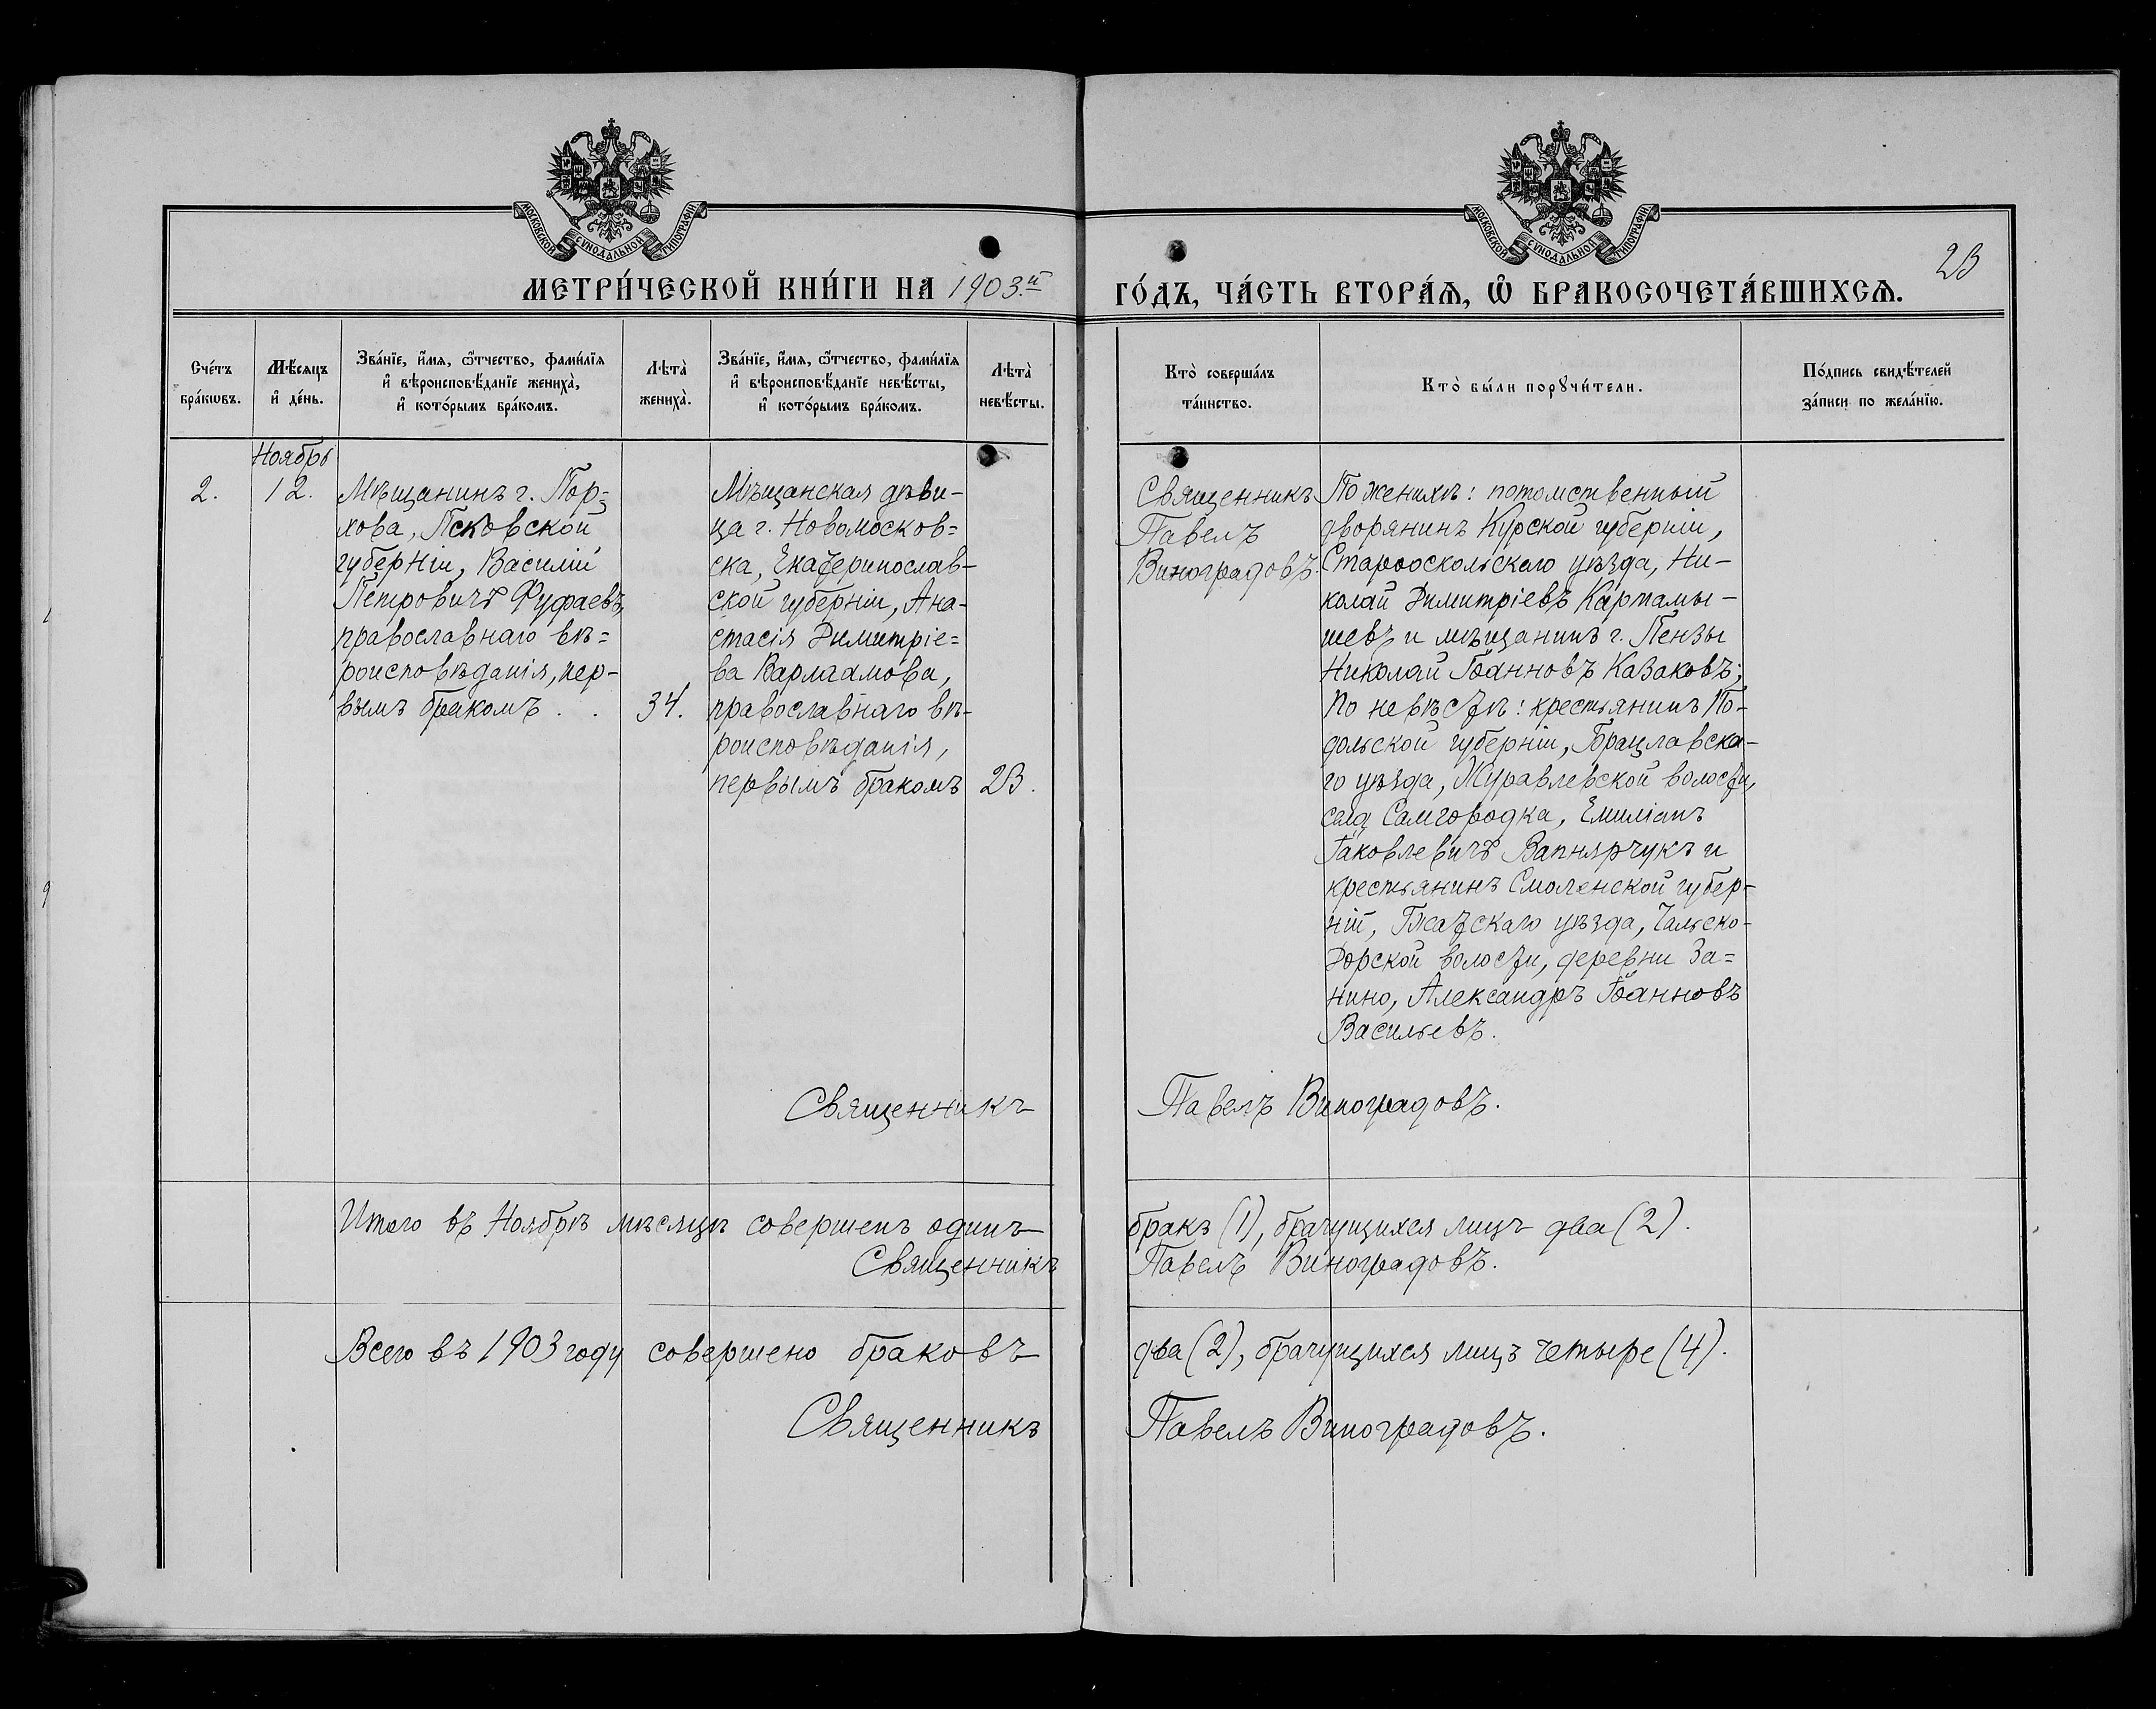 МОСКОВСКОЙ СУНОДАЛЬНОЙ ТИПОГРАФІИ
МОСКОВСКОЙ СУНОДАЛЬНОЙ ТИПОГРАФІИ
23
МЕТРИ́ЧЕСКОЙ КНИ́ГИ НА 1903.й
ГО́ДЪ, ЧА́СТЬ ВТОРА́Ѧ, Ѽ БРАКОСОЧЕТА́ВШИХСѦ.
Сче́тъ
бра́кѡвъ.
Мѣ́сяцъ
и҆ де́нь.
Зва́нїе, и҆́мѧ, ѻ҆́тчество, фами́лїѧ
и҆ вѣроисповѣ́данїе жениха̀,
и҆ кото́рымъ бра́комъ.
Лѣта̀
жениха̀.
Зва́нїе, и҆́мѧ, ѻ҆́тчество, фами́лїѧ
и҆ вѣроисповѣ́данїе невѣ́сты,
и҆ кото́рымъ бра́комъ.
Лѣта̀
невѣ́сты.
Кто̀ соверша́лъ
та́инство.
Кто̀ бы́ли порꙋчи́тели.
По́дпись свидѣ́телей
за́писи по жела́нїю.
2.
Ноябрь
12.
Мѣщанинъ г. Пор=
хова, Псковской
губерніи, Василій
Петровичъ Фуфаевъ,
православнаго вѣ=
роисповѣданія, пер-
вымъ бракомъ . .
34.
Мѣщанская дѣви-
ца г. Новомосков=
ска, Екатеринослав-
ской губерніи, Ана-
стасія Димитріе=
ва Варлаамова,
православнаго вѣ-
роисповѣданія,
первымъ бракомъ
23.
Священникъ
Павелъ
Виноградовъ.
По женихѣ: потомственный
дворянинъ Курской губерніи,
Старооскольскаго уѣзда, Ни-
колай Димитріевъ Картамы-
шевъ и мѣщанинъ г. Пензы
Николай Іоанновъ Казаковъ;
по невѣстѣ: крестьянинъ По-
дольской губерніи, Брацлавска-
го уѣзда, Журавлевской волости,
села Самгородка, Емиліанъ
Іаковлевичъ Вапнярчукъ и
крестьянинъ Смоленской губер-
ніи, Гжатскаго уѣзда, Чальско-
Дорской волости, деревни За=
нино, Александръ Іоанновъ
Васильевъ.
Священникъ Павелъ Виноградовъ.
Итого въ Ноябрѣ мѣсяцѣ совершенъ одинъ бракъ (1), брачущихся лицъ два (2).
Священникъ Павелъ Виноградовъ.
Всего въ 1903 году совершено браковъ два (2), брачущихся лицъ четыре (4).
Священникъ Павелъ Виноградовъ.